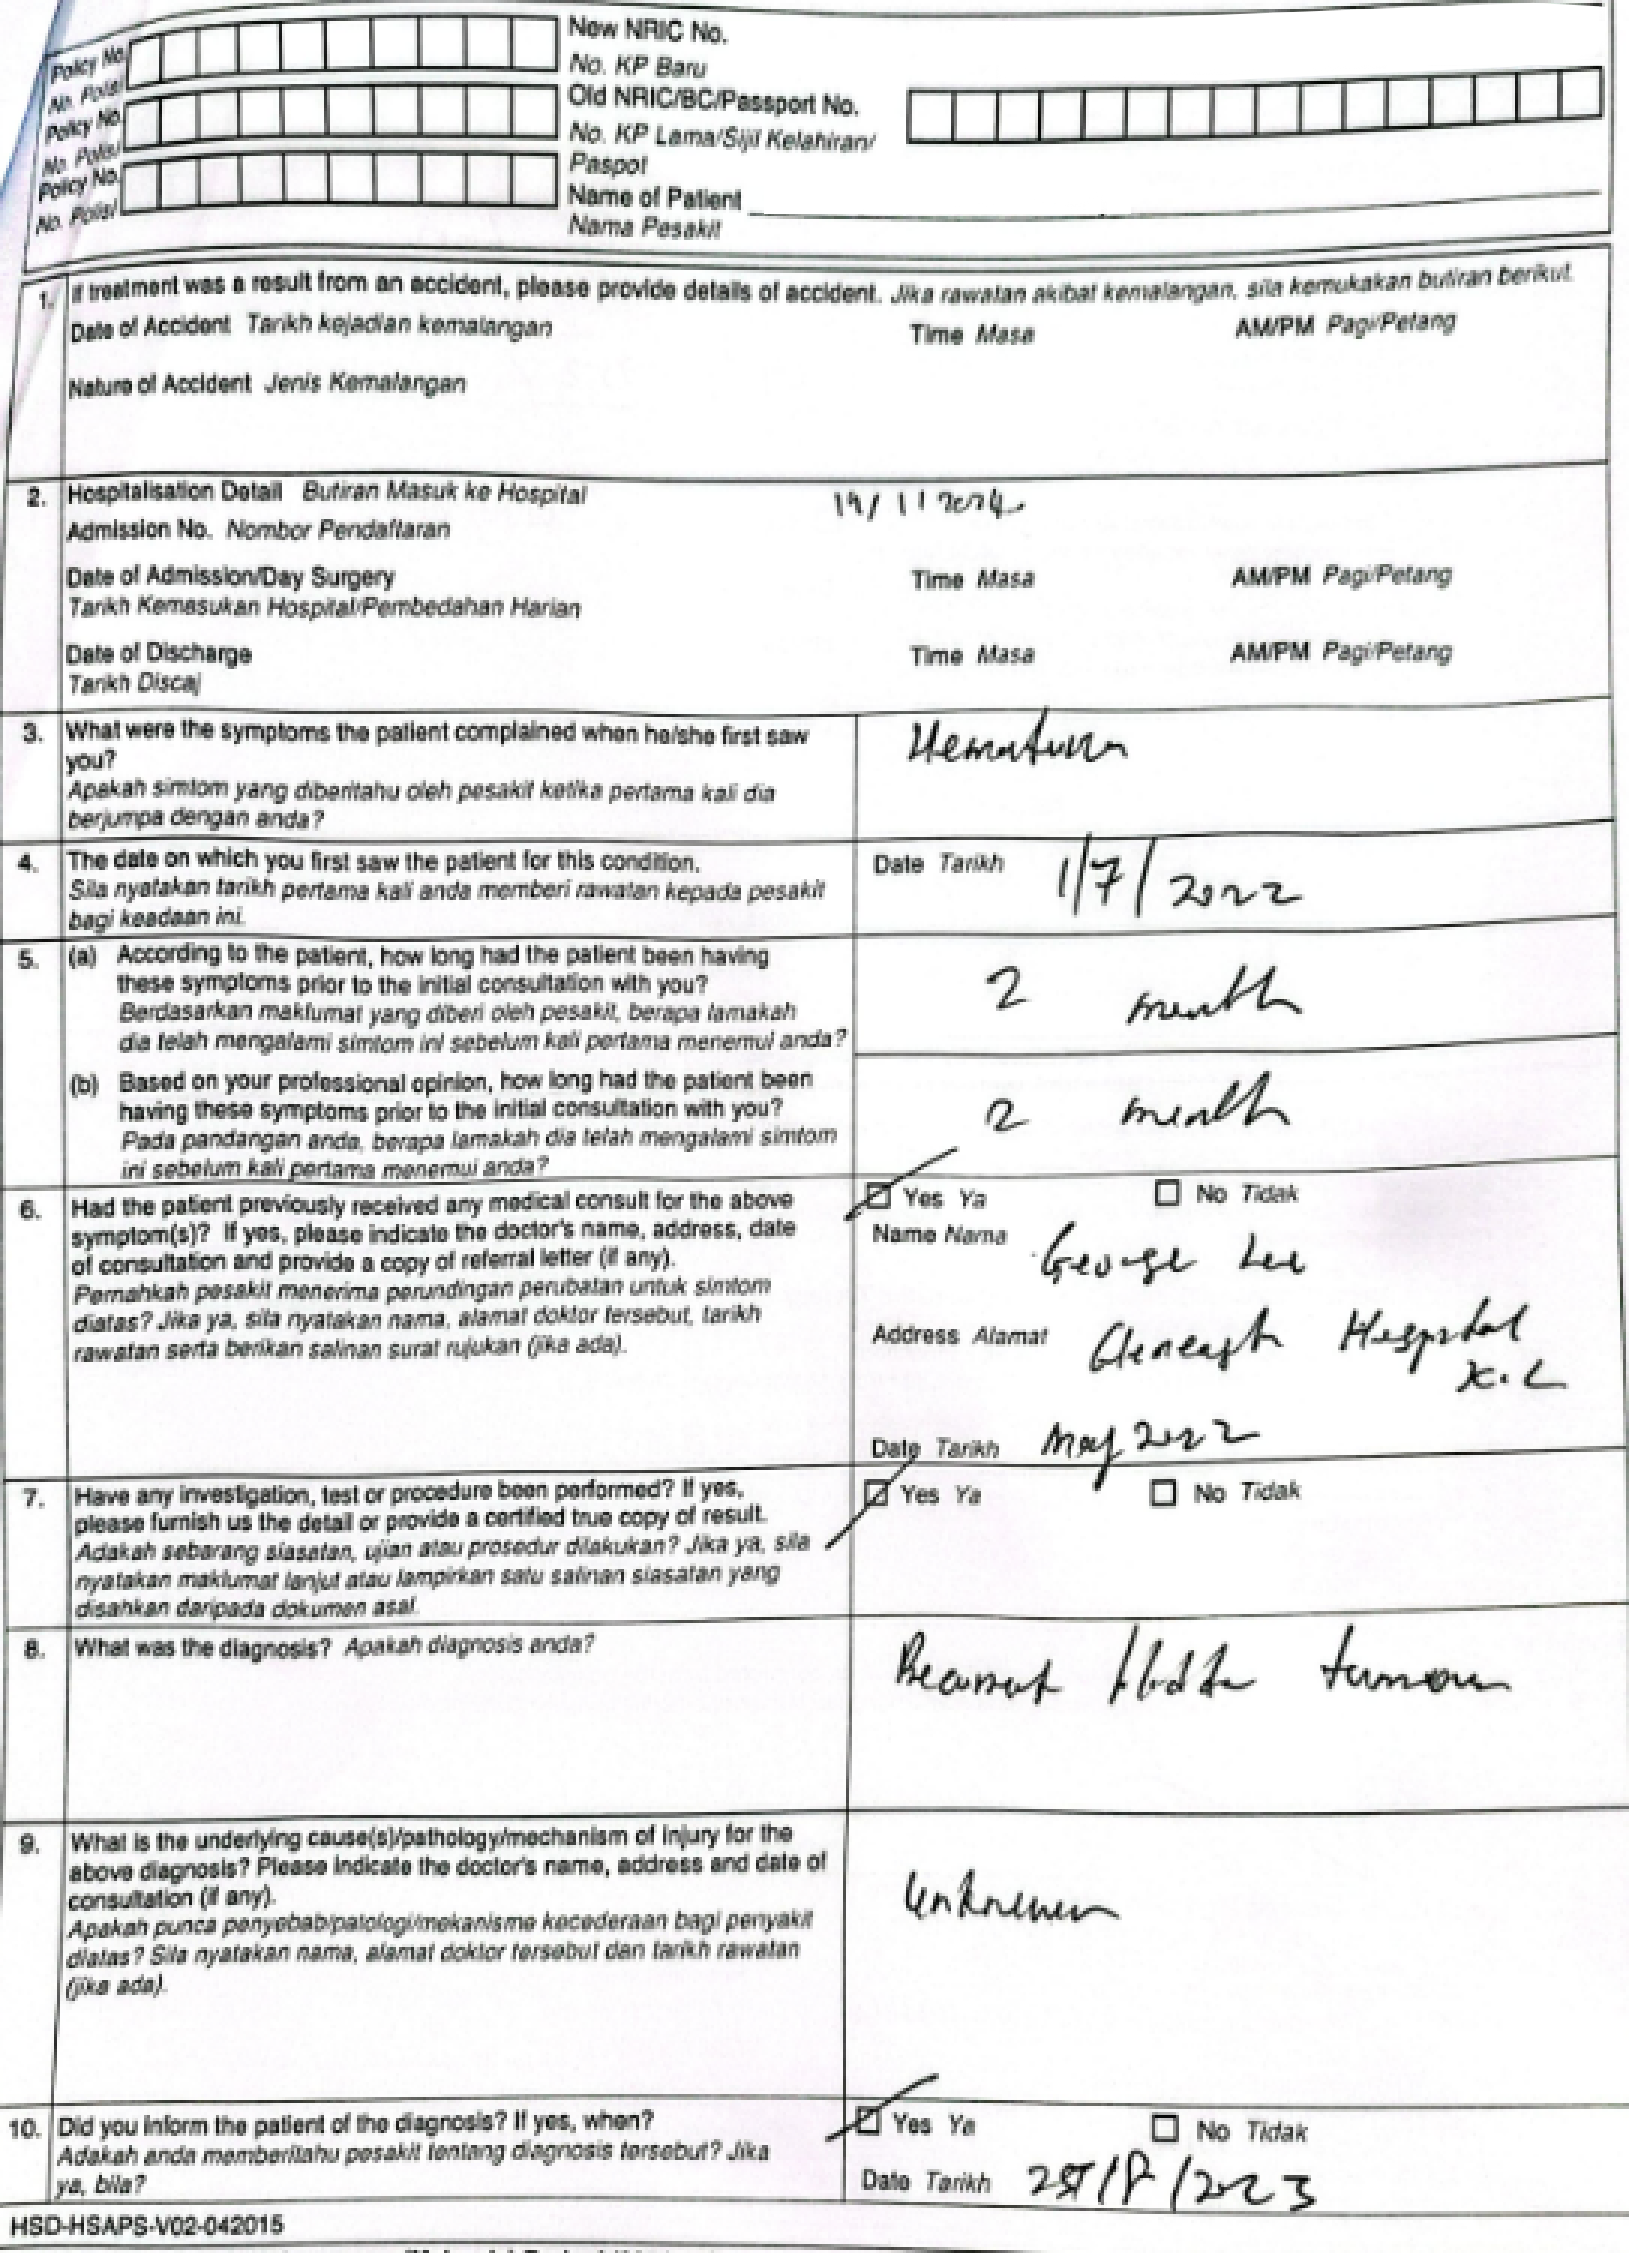 Policy No.
No. Polisi
Policy No.
No. Polisi
Policy No.
No. Polisi
New NRIC No.
No. KP Baru
Old NRIC/BC/Passport No.
No. KP Lama/Sijil Kelahiran/
Paspot
Name of Patient
Nama Pesakit
1. If treatment was a result from an accident, please provide details of accident. Jika rawatan akibat kemalangan, sila kemukakan butiran berikut.
Date of Accident Tarikh kejadian kemalangan Time Masa AM/PM Pagi/Petang
Nature of Accident Jenis Kemalangan
2. Hospitalisation Detail Butiran Masuk ke Hospital
Admission No. Nombor Pendaftaran
Date of Admission/Day Surgery Time Masa AM/PM Pagi/Petang
Tarikh Kemasukan Hospital/Pembedahan Harian
Date of Discharge Time Masa AM/PM Pagi/Petang
Tarikh Discaj
3. What were the symptoms the patient complained when he/she first saw
you?
Apakah simtom yang diberitahu oleh pesakit ketika pertama kali dia
berjumpa dengan anda?
Hematuria
4. The date on which you first saw the patient for this condition.
Sila nyatakan tarikh pertama kali anda memberi rawatan kepada pesakit
bagi keadaan ini.
Date Tarikh 1/7/2022
5. (a) According to the patient, how long had the patient been having
these symptoms prior to the initial consultation with you?
Berdasarkan maklumat yang diberi oleh pesakit, berapa lamakah
dia telah mengalami simtom ini sebelum kali pertama menemui anda?
2 month
(b) Based on your professional opinion, how long had the patient been
having these symptoms prior to the initial consultation with you?
Pada pandangan anda, berapa lamakah dia telah mengalami simtom
ini sebelum kali pertama menemui anda?
2 month
6. Had the patient previously received any medical consult for the above
symptom(s)? If yes, please indicate the doctor's name, address, date
of consultation and provide a copy of referral letter (if any).
Pernahkah pesakit menerima perundingan perubatan untuk simtom
diatas? Jika ya, sila nyatakan nama, alamat doktor tersebut, tarikh
rawatan serta berikan salinan surat rujukan (jika ada).
Yes Ya No Tidak
Name Nama George Lee
Address Alamat Hospital
K.L
Date Tarikh May 2022
7. Have any investigation, test or procedure been performed? If yes,
please furnish us the detail or provide a certified true copy of result.
Adakah sebarang siasatan, ujian atau prosedur dilakukan? Jika ya, sila
nyatakan maklumat lanjut atau lampirkan satu salinan siasatan yang
disahkan daripada dokumen asal.
Yes Ya No Tidak
8. What was the diagnosis? Apakah diagnosis anda?
tumour
9. What is the underlying cause(s)/pathology/mechanism of injury for the
above diagnosis? Please indicate the doctor's name, address and date of
consultation (if any).
Apakah punca penyebab/patologi/mekanisme kecederaan bagi penyakit
diatas? Sila nyatakan nama, alamat doktor tersebut dan tarikh rawatan
(jika ada).
Unknown
10. Did you inform the patient of the diagnosis? If yes, when?
Adakah anda memberitahu pesakit tentang diagnosis tersebut? Jika
ya, bila?
Yes Ya No Tidak
Date Tarikh
HSD-HSAPS-V02-042015